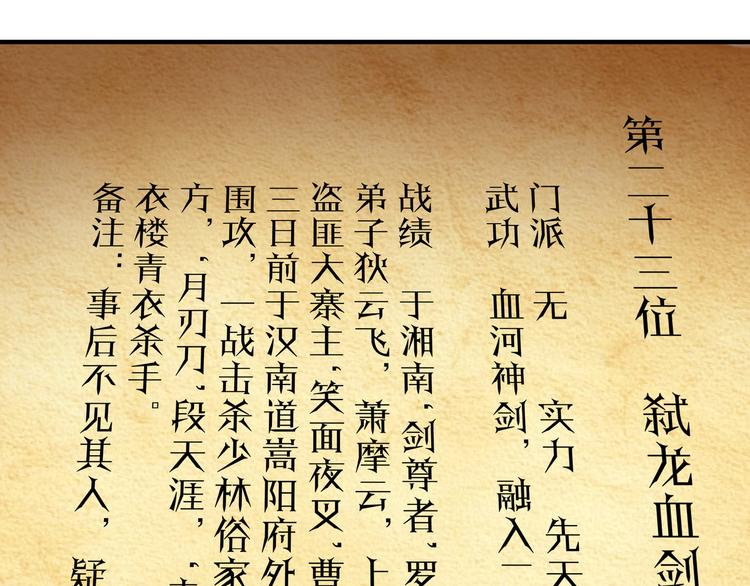 第二十三位 弑龙血剑
门派 无 实力 先天
武功 血河神剑，融入一
战绩 于湘南、剑尊者、罗
弟子狄云飞，萧摩云，上
盗匪大寨主、笑面夜叉、曹
三日前于汉南道嵩阳府外
围攻，一战击杀少林俗家
方，、月刃刀、段天涯，
衣楼青衣杀手。
备注：事后不见其人，疑